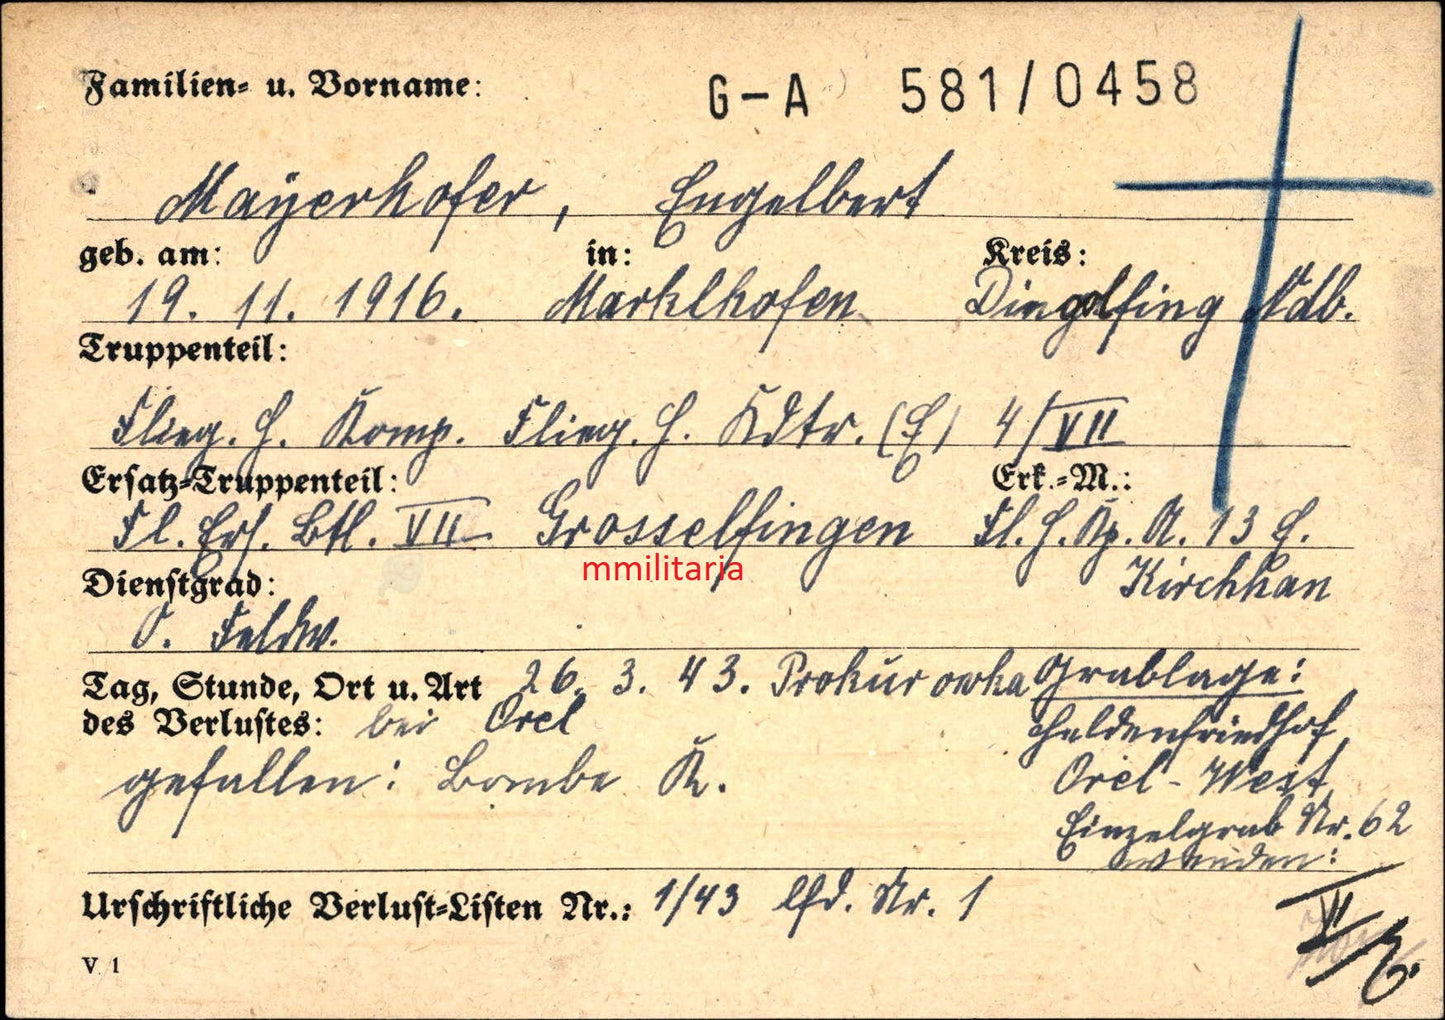 Familien- u. Vorname:
G-A 581/0458
Mayerhofer, Engelbert
geb. am: in: Kreis:
19. 11. 1916. Marklhofen Dingolfing Ndb.
Truppenteil:
Flieg. H. Komp. Flieg. H. Kdtr. (E) 4/VII
Ersatz-Truppenteil: Erk.-M.:
Fl. Ers. Btl. VII Grosselfingen Fl. H. Kp. A. 13 E.
mmilitaria
Dienstgrad: Kirchhan
O. Feldw.
Tag, Stunde, Ort u. Art 26. 3. 43. Prokurowka Grablage:
des Verlustes: bei Orel Heldenfriedhof
gefallen: Bombe K. Orel-West
Einzelgrab Nr. 62
wenden:
Urschriftliche Verlust-Listen Nr.: 1/43 lfd. Nr. 1
V 1